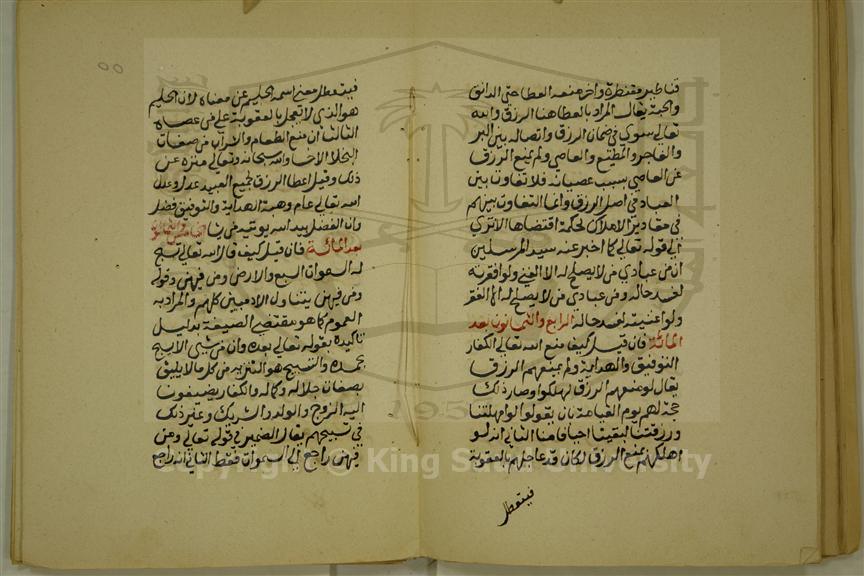 قناطير مقنطرة واخر منعه العطا حتى الدانق
والحبة يقال المراد بالعطا هنا الرزق والله
تعالى سوى في ضمان الرزق وايصاله بين البر
والفاجر والمطيع والعاصي ولم يمنع الرزق
عن العاصي بسبب عصيانه فلا تفاوت بين
العباد في اصل الرزق وانما التفاوت بينهم
في مقادير الاملاك لحكمة اقتضاها الا ترى
الى قوله تعالى كما اخبر عنه سيد المرسلين
ان من عبادي من لا يصلح له الا الغنى ولو افقرته
لفسد حاله ومن عبادي من لا يصلح له الا الفقر
ولو اغنيته لفسد حاله الرابع والثمانون بعد
المائة فان قيل كيف منع الله تعالى الكفار
التوفيق والهداية ولم يمنعهم الرزق
يقال لو منعهم الرزق لهلكوا وصار ذلك
حجة لهم يوم القيامة بان يقولوا لو امهلتنا
ورزقتنا لبقينا احيانا منا الثاني انه لو
اهلكهم بمنع الرزق لكان قد عاجلهم بالعقوبة
فيتعطل
فيتعطل معنى اسمه الحليم عن معناه لان الحليم
هو الذي لا يعجل بالعقوبة على من عصاه
الثالث ان منع الطعام والشراب من صفات
البخلا الاخسا والله سبحانه وتعالى منزه عن
ذلك وقيل اعطا الرزق لجميع العبيد عدل وعدل
الله تعالى عام وهبة الهداية والتوفيق فضل
وان الفضل بيد الله يوتيه من يشا الخامس والثمانون
بعد المائة فان قيل كيف قال الله تعالى تسبح
له السموات السبع والارض ومن فيهن وقوله
ومن فيهن يتناول الادميين كلهم والمراد به
العموم كما هو مقتضى الصيغة بدليل
تاكيده بقوله تعالى بعده وان من شي الا يسبح
بحمده والتسبيح هو التنزيه من كل ما لا يليق
بصفات جلاله وكماله والكفار يضيفون
اليه الزوج والولد والشريك وغير ذلك
في تسبيحهم يقال الضمير في قوله تعالى ومن
فيهن راجع الى السموات فقط الثاني انه راجع
Copyright © King Saud University
195